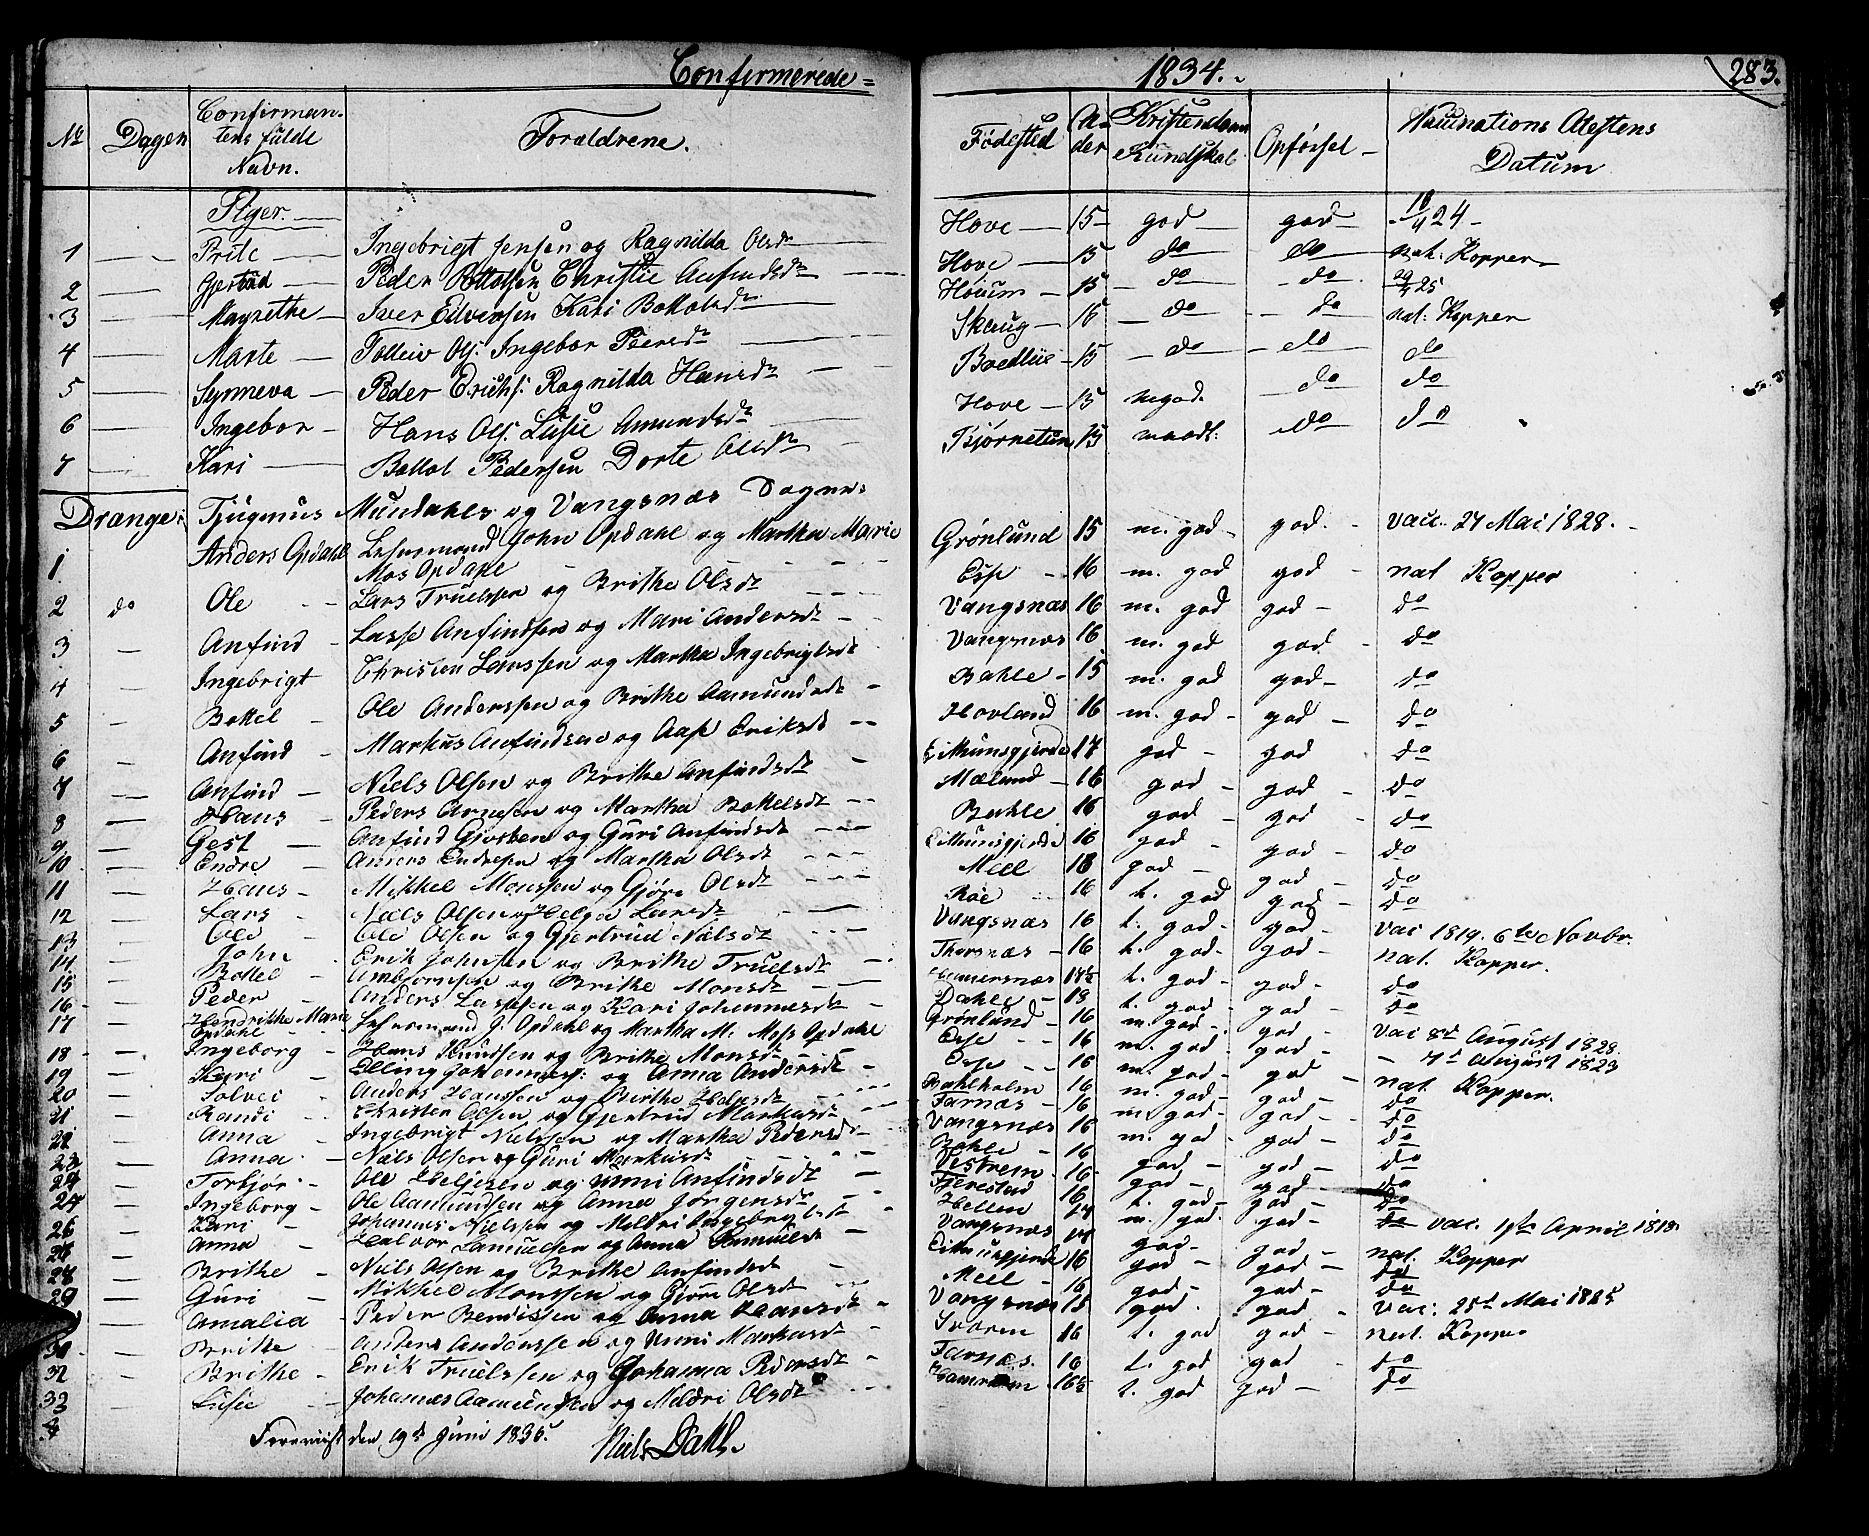 Confirmerede = 1834. 283.
No Dagen Confirman- tens fulde Navn. Forældrene. Fødested Al- der Kristendoms Kundskab Opførsel Vaccinations Attestens Datum
Piger.
1 Brite Ingebrigt Jensen og Ragnilda Olsdr Hove 15 god god 24
2 Gjertrud Peder Christie Anfindsdr Hove 15 do do nat. Kopper
3 Magrethe Iver Kari Høium 15 do do 25
4 Marte Tolleiv Ols: Ingebor Persdr Skaug 16 do do nat. Kopper
5 Synneva Peder Erichs: Ragnilda Hansdr 15 do do do
6 Ingebor Hans Ols: Lusie Amundsdr Hove 15 megod. do do
7 Kari Bottol Pedersen Dorte Olsdr Bjørnetun 15 maadl: do do
Drænge: Tjugums Mundahls og Vangsnæs Sogne
1 Anders Opdahl John Opdahl og Martha Marie Mos Opdahl Grønlund 15 m. god god vacc. 27 Mai 1828.
2 do Ole Lars Truelssen og Brithe Olsdt Esse 16 m. god god nat Kopper
3 Anfind Lasse Anfindsen og Mari Andersdt Vangsnæs 16 m. god god do
4 Ingebrigt Christen Larssen og Martha Ingebrigtsdt Vangsnæs 16 m. god god do
5 Bottel Ole Anderssen og Brithe Aamundsdt Bahle 15 m. god god do
6 Anfind Markus Anfindsen og Aase Eriksdt Hovland 16 m. god god do
7 Anfind Niels Olsen og Brithe Anfindsdt 17 god god do
8 Hans Peders Arnesen og Martha Bottelsdt Mæland 16 god god do
9 Gest Anfind og Guri Anfindsdt Bahle 16 god god do
10 Endre Anders Endresen og Martha Olsdt 16 god god do
11 Hans Mikkel Monssen og Gjøre Olsdt Meel 18 god god do
12 Lars Niels Olsen og Helga Larsdt Røe 16 t. god god do
13 Ole Ole Olsen og Gjertrud Nielsdt Vangsnæs 16 t. god god vac 1819. 6te Novbr.
14 John Erik Johnsen og Brithe Truelsdt Thorsnæs 16 t. god god nat. Kopper.
15 Bottel og Brithe Monsdt t. god god do
16 Peder Anders Lassesen og Kari Johannesdt Dahle 18 t. god god do
17 Hendrikke Marie Opdahl J. Opdahl og Martha M. Moss Opdahl Grønlund 16 m. god god vac 8de August 1828.
18 Ingeborg Hans Knudsen og Brithe Monsdt Esse 16 m. god god 7de August 1823
19 Kari Elling Johanness: og Anna Andersdt Esse 16 m. god god nat. Kopper.
20 Solvei Anders Hanssen og Birthe Bahlholm 16 m. god god do
21 Randi Christen Olsen og Gjertrud Markusdt Farnæs 16 m. god god do
22 Anna Ingebrigt Nielssen og Martha Pedersdt Vangsnæs 16 m. god god do
23 Anna Niels Olsen og Guri Markusdt Bahle 16 god god do
24 Torbjør Ole og Unni Anfindsdt Vestrem 16 god god do
Ingeborg Ole Aamundsen og Anna Jørgensdt Tjerestad 16 t. god god do
26 Kari Johannes Nielsen og Meldri Ingebrigtsdt Hellen m. god. god vac. 1ste April 1818
Anna Halvor Samuelsen og Anna Samuelsdt Vangsnæs god god nat. Kopper
28 Brithe Niels Olsen og Brithe Anfindsdt 16 god god do
29 Guri Mikkel Monssen og Gjøre Olsdt Meel 16 god god do
Amalia Peder og Anna Hansdt Vangsnæs 15 god god vac: 25de Mai 1825
Brithe Anders Anderssen og Unni Markusdt Sværen 16 t. god god nat. Kopper
32 Brithe Erik Truelssen og Johanna Pedersdt Farnæs. 16 t. god god do
33 Lusie Johannes Aamundsen og Meldri Olsdt 16½ t. god god do
Foreviist den 19de Juni 1835. Niels Dahl.